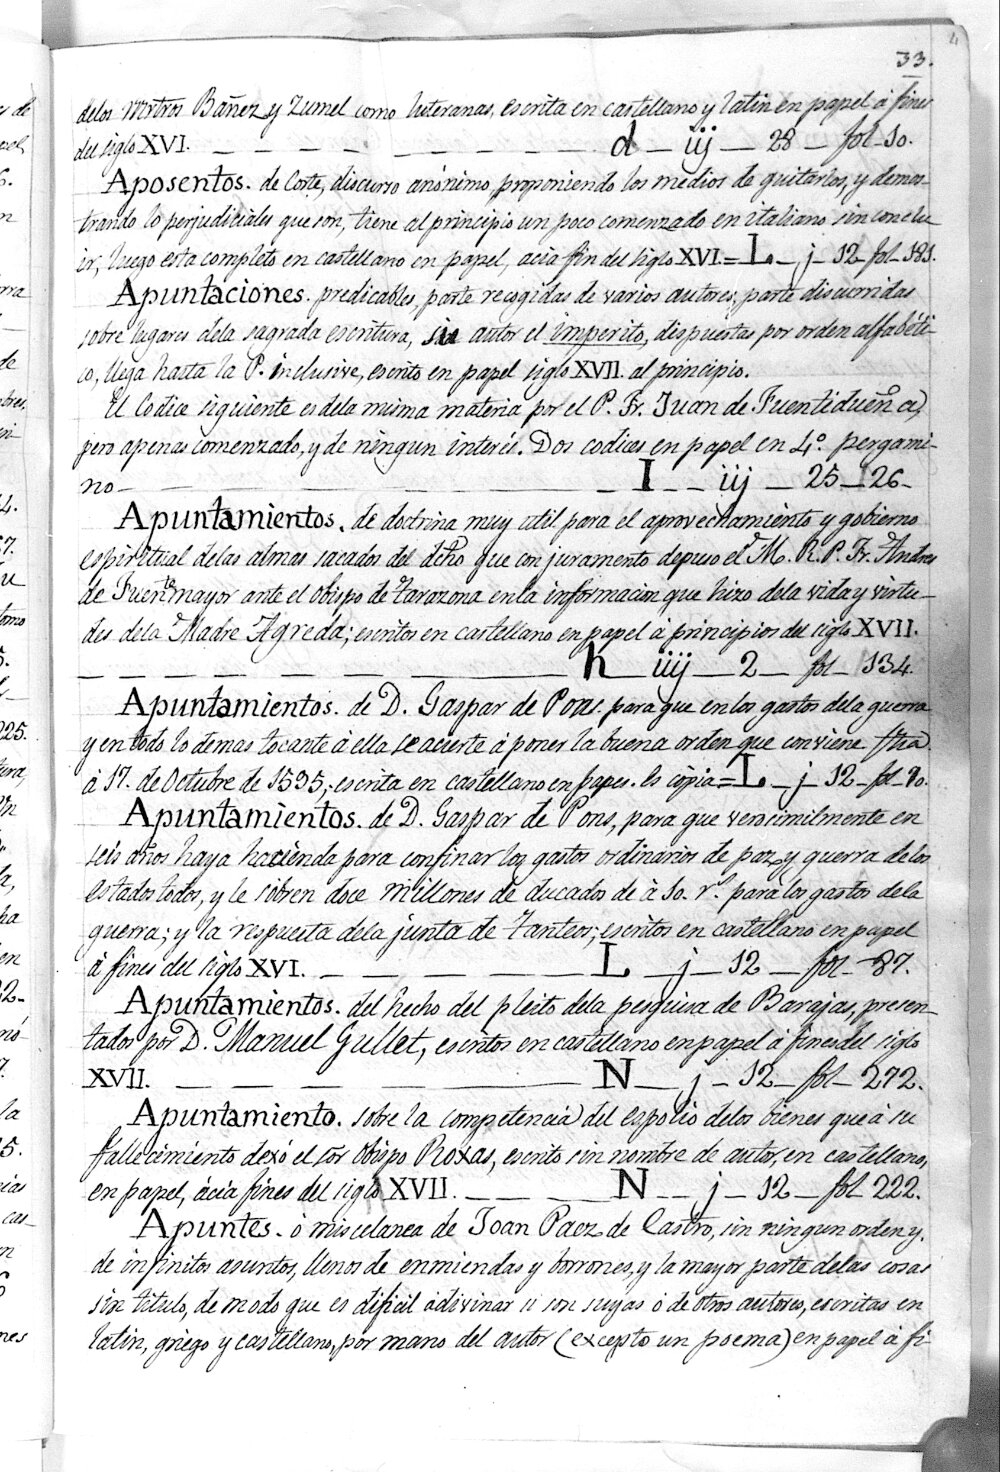 33.
delos Mrtros Bañez y Zumel como luteranas, escrita en castellano y latin en papel á fines
del siglo XVI. — — — — — — — — d — iij — 28 — fol - 10.
Aposentos. de Corte, discurso anónimo, proponiendo los medios de quitarlos, y demos-
trando lo perjudiciales que son, tiene al principio un poco comenzado en italiano sin conclu-
ir, luego esta completo en castellano en papel, acia fin del siglo XVI. = L - j - 12 - fol - 181.
Apuntaciones. predicables, parte recogidas de varios autores, parte discurridas
sobre lugares dela sagrada escritura, su autor el imperito, dispuestas por orden alfabéti-
co, llega hasta la P. inclusive, escrito en papel siglo XVII. al principio.
El Codice siguiente es dela misma materia por el P. Fr. Juan de Fuentidueña,
pero apenas comenzado, y de ningun interés. Dos codices en papel en 4º. pergami-
no — — — — — — — — — — I — — iij — 25 — 26 -
Apuntamientos. de doctrina muy util para el aprovechamiento y gobierno
espiritual delas almas sacados del dicho que con juramento depuso el M. R. P. Fr. Andres
de Fuenmayor ante el obispo de Tarazona enla informacion que hizo dela vida y virtu-
des dela Madre Agreda; escritos en castellano en papel á principios del siglo XVII.
— — — — — — — — — h — iiij — 2 — fol — 134.
Apuntamientos. de D. Gaspar de Pons. para que en los gastos dela guerra
y en todo lo demas tocante á ella se acierte á poner la buena orden que conviene. fha
á 17. de Octubre de 1595; escrita en castellano en papel. Es copia = L - j - 12 - fol - 70.
Apuntamientos. de D. Gaspar de Pons, para que verosimilmente en
seis años haya hacienda para confinar los gastos ordinarios de paz y guerra delos
estados todos, y le sobren doce millones de ducados de á 10. rs. para los gastos dela
guerra; y la respuesta dela junta de Tanteos; escritos en castellano en papel
á fines del siglo XVI. — — — — — — L — j — 12 — fol - 87.
Apuntamientos. del hecho del pleito dela pesquisa de Barajas, presen-
tados por D. Manuel Gullet, escritos en castellano en papel á fines del siglo
XVII. — — — — — — — — N — j — 12 — fol - 272.
Apuntamiento. sobre la competencia del espolio delos bienes que á su
fallecimiento dexó el sor obispo Roxas, escrito sin nombre de autor, en castellano,
en papel, ácia fines del siglo XVII. — — — — N — j — 12 — fol 222.
Apuntes. ó miscelanea de Joan Paez de Castro, sin ningun orden y,
de infinitos asuntos, llenos de enmiendas y borrones, y la mayor parte delas cosas
sin titulo, de modo que es dificil adivinar si son suyas ó de otros autores, escritas en
latin, griego y castellano, por mano del autor (excepto un poema) en papel á fi-